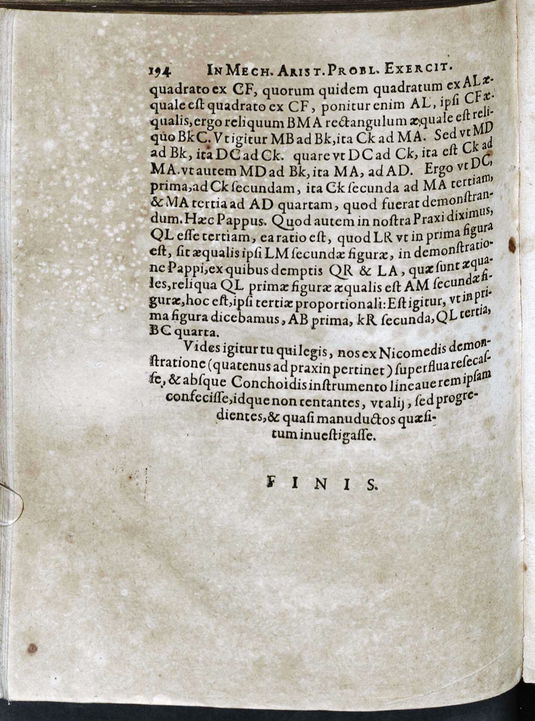 194 IN MECH. ARIST. PROBL. EXERCIT.
quadrato ex CF, quorum quidem quadratum ex AL æ-
quale est quadrato ex CF, ponitur enim AL, ipsi CF æ-
qualis, ergo reliquum BMA rectangulum æquale est reli-
quo BkC. Vt igitur MB ad Bk, ita Ck ad MA. Sed vt MD
ad Bk, ita DC ad Ck. quare vt DC ad Ck, ita est Ck ad
MA. vt autem MD ad Bk, ita MA, ad AD. Ergo vt DC,
prima, ad Ck secundam, ita Ck secunda ad MA tertiam,
& MA tertia ad AD quartam, quod fuerat demonstran-
dum. Hæc Pappus. Quod autem in nostra Praxi diximus,
QL esse tertiam, ea ratio est, quod LR vt in prima figura
est, sit æqualis ipsi LM secundæ figuræ, in demonstratio-
ne Pappi, ex quibus demptis QR & LA, quæ sunt æqua-
les, reliqua QL primæ figuræ æqualis est AM secundæ fi-
guræ, hoc est, ipsi tertiæ proportionali: Est igitur, vt in pri-
ma figura dicebamus, AB prima, kR secunda, QL tertia,
BC quarta.
Vides igitur tu qui legis, nos ex Nicomedis demon-
stratione (quatenus ad praxin pertinet) superflua resecas-
se, & absque Conchoidis instrumento lineaue rem ipsam
confecisse, idque non tentantes, vt alij, sed progre-
dientes, & quasi manuductos quæsi-
tum inuestigasse.
FINIS.